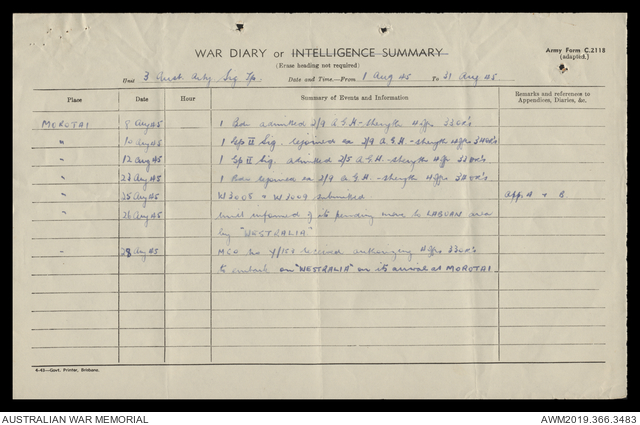 WAR DIARY or INTELLIGENCE SUMMARY
(Erase heading not required)
Army Form C.2118
(adapted.)
Unit 3 Aust. Arty Sig Tp. Date and Time—From 1 Aug 45 To 31 Aug 45
Place Date Hour Summary of Events and Information Remarks and references to Appendices, Diaries, &c.
MOROTAI 8 Aug 45 1 admitted 2/9 A.G.H - strength 4 offrs 33 OR's
" 10 Aug 45 1 Gp II Sig. rejoined ex 2/9 A.G.H. - strength 4 offrs 34 OR's
" 12 Aug 45 1 Gp II Sig. admitted 2/5 A.G.H. - strength 4 offrs 33 OR's
" 23 Aug 45 1 rejoined ex 2/9 A.G.H - strength 4 offrs 34 OR's
" 25 Aug 45 W3008 & W3009 submitted App. A & B.
" 26 Aug 45 Unit informed of its pending move to LABUAN area
by "WESTRALIA"
" 28 Aug 45 received authorizing 4 offrs 33 OR's
to embark on "WESTRALIA" on its arrival at MOROTAI.
4-43—Govt. Printer, Brisbane.
AUSTRALIAN WAR MEMORIAL
AWM2019.366.3483